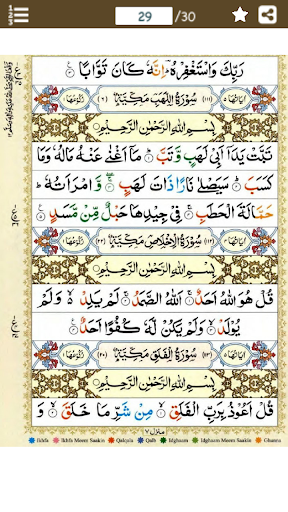 29 /30
رَبِّكَ وَاسْتَغْفِرْهُ ؔ اِنَّهٗ كَانَ تَوَّابًا
سُوْرَةُ اللَّهَبِ مَكِّيَّةٌ
بِسْمِ اللّٰهِ الرَّحْمٰنِ الرَّحِيْمِ
تَبَّتْ يَدَاۤ اَبِيْ لَهَبٍ وَّتَبَّ مَاۤ اَغْنٰى عَنْهُ مَالُهٗ وَمَا
كَسَبَ سَيَصْلٰى نَارًا ذَاتَ لَهَبٍ وَّامْرَاَتُهٗ
حَمَّالَةَ الْحَطَبِ فِيْ جِيْدِهَا حَبْلٌ مِّنْ مَّسَدٍ
سُوْرَةُ الْاِخْلَاصِ مَكِّيَّةٌ
بِسْمِ اللّٰهِ الرَّحْمٰنِ الرَّحِيْمِ
قُلْ هُوَ اللّٰهُ اَحَدٌ اَللّٰهُ الصَّمَدُ لَمْ يَلِدْ وَلَمْ
يُوْلَدْ وَلَمْ يَكُنْ لَّهٗ كُفُوًا اَحَدٌ
سُوْرَةُ الْفَلَقِ مَكِّيَّةٌ
بِسْمِ اللّٰهِ الرَّحْمٰنِ الرَّحِيْمِ
قُلْ اَعُوْذُ بِرَبِّ الْفَلَقِ مِنْ شَرِّ مَا خَلَقَ وَ
منزل ٧
Ikhfa Ikhfa Meem Saakin Qalqala Qalb Idghaam Idghaam Meem Saakin Ghunna